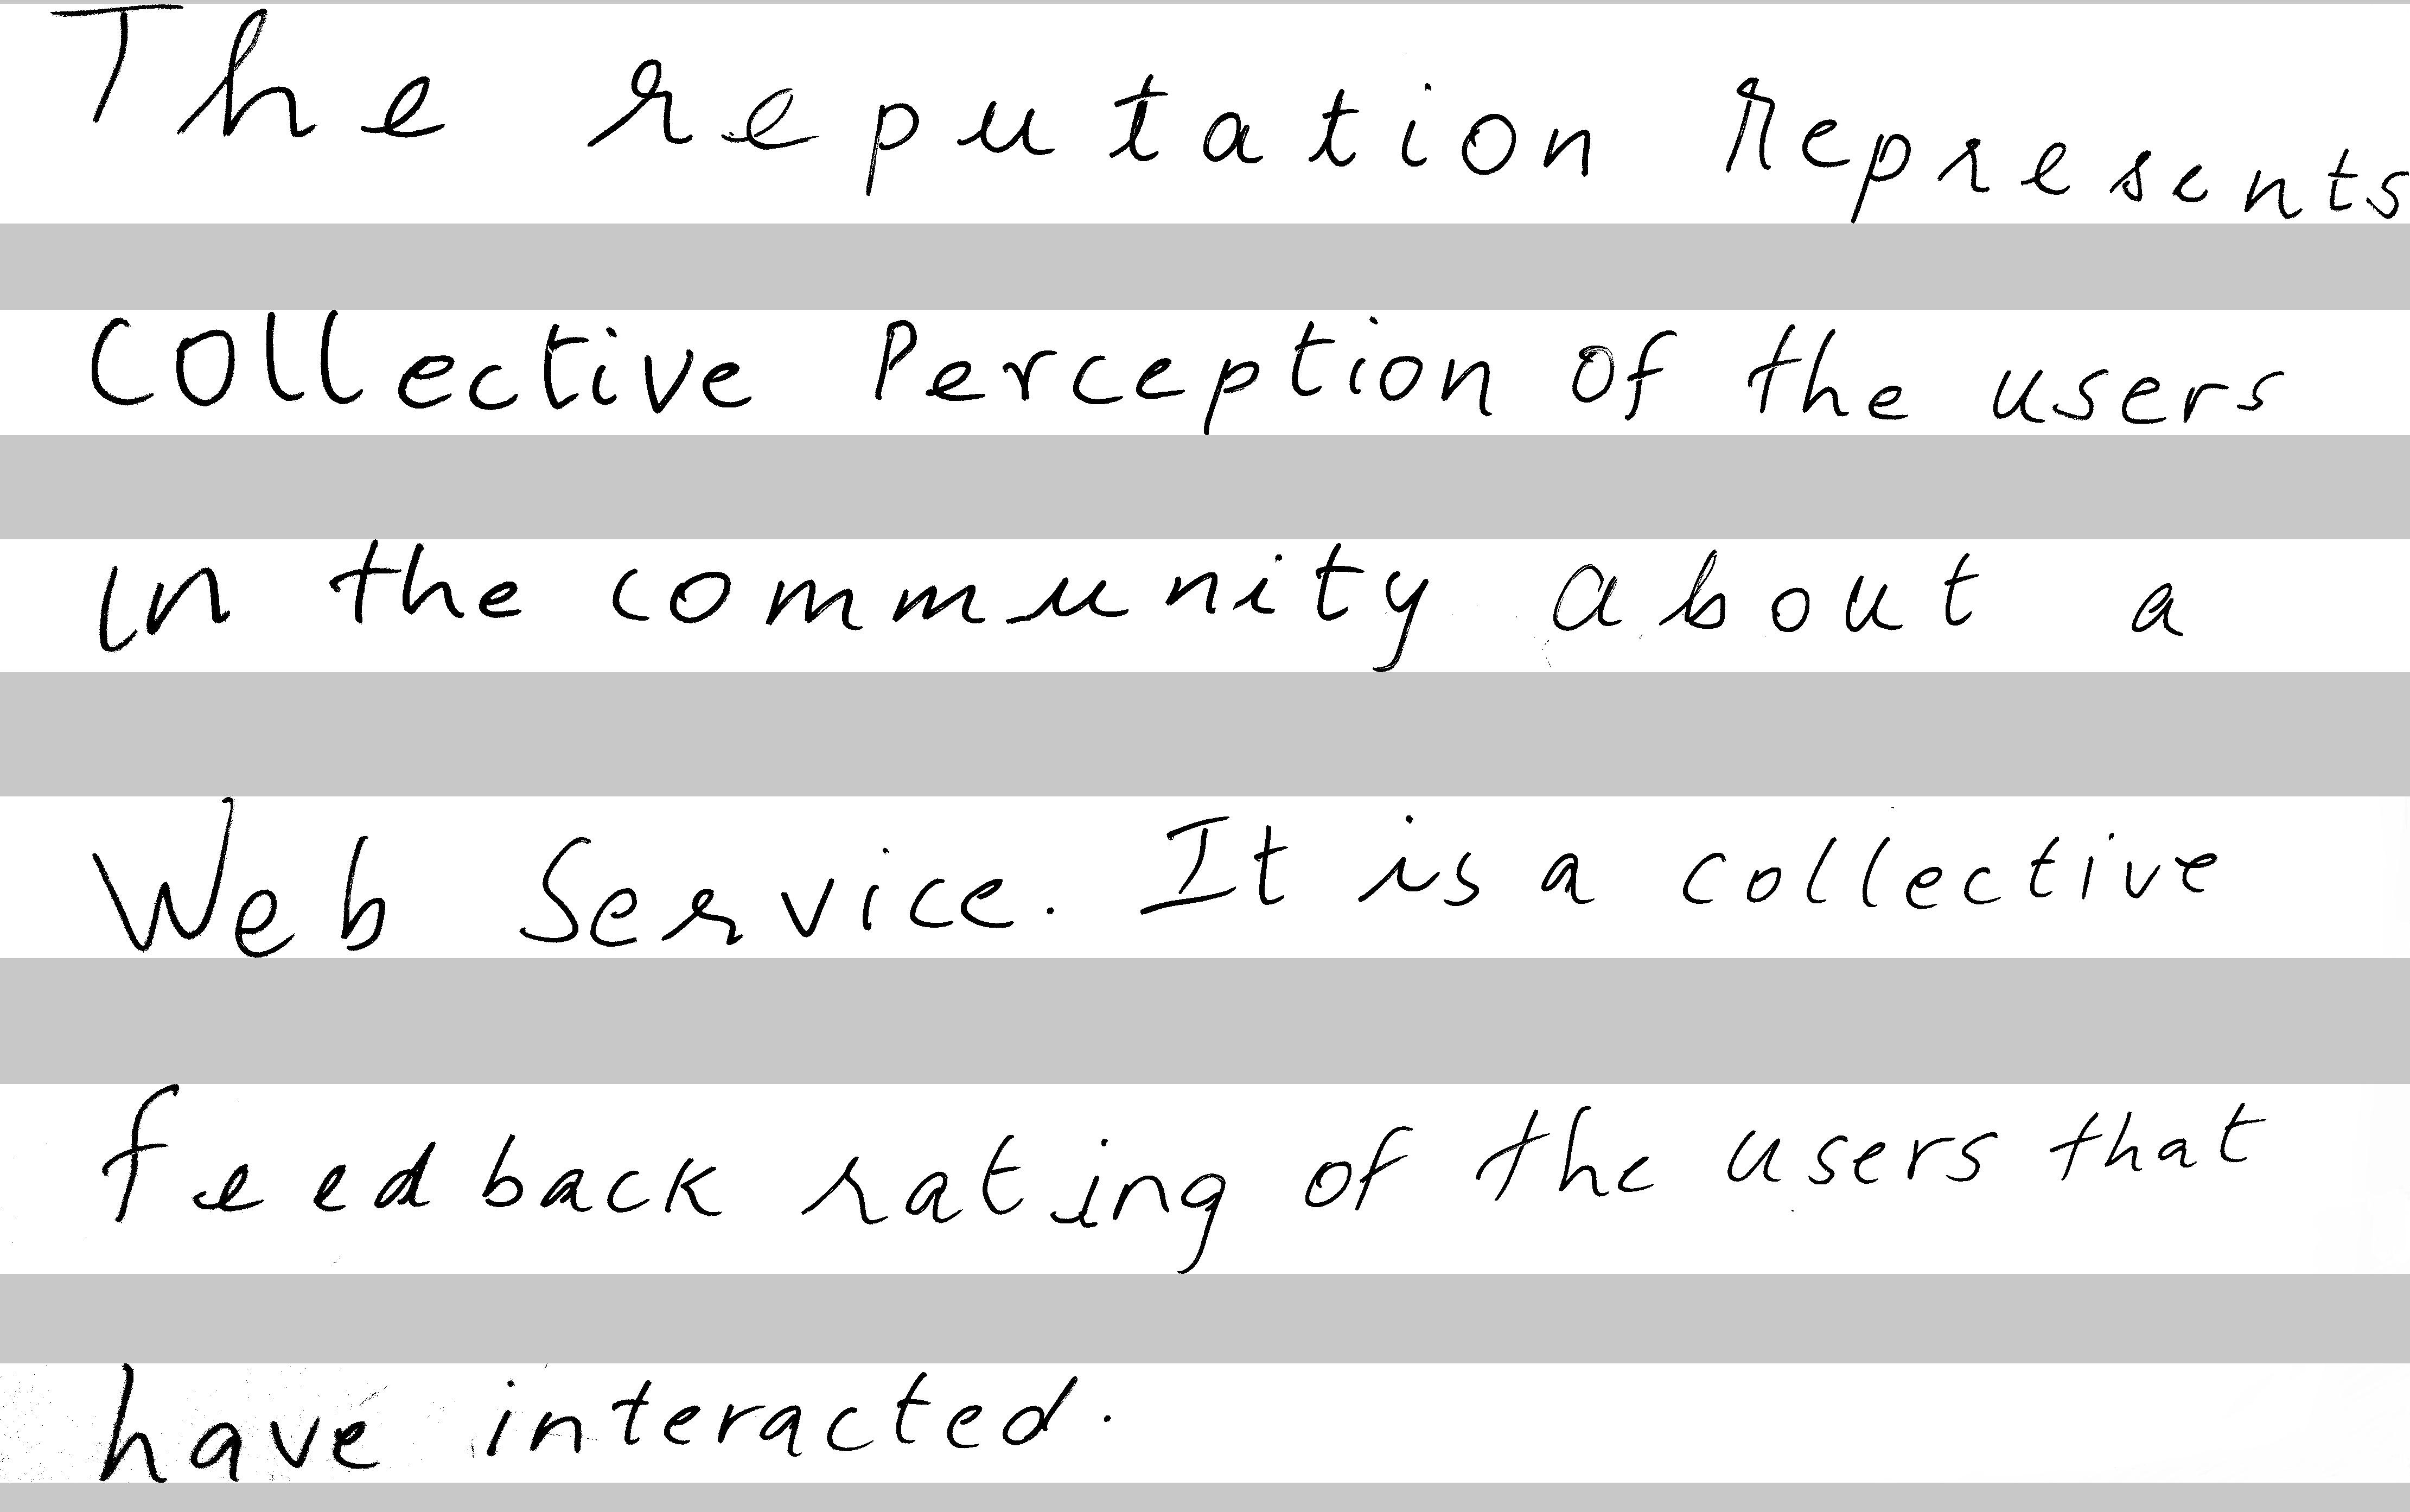 The reputation represents
Collective Perception of the users
in the community about a
Web Service. It is a collective
feedback rating of the users that
have interacted.